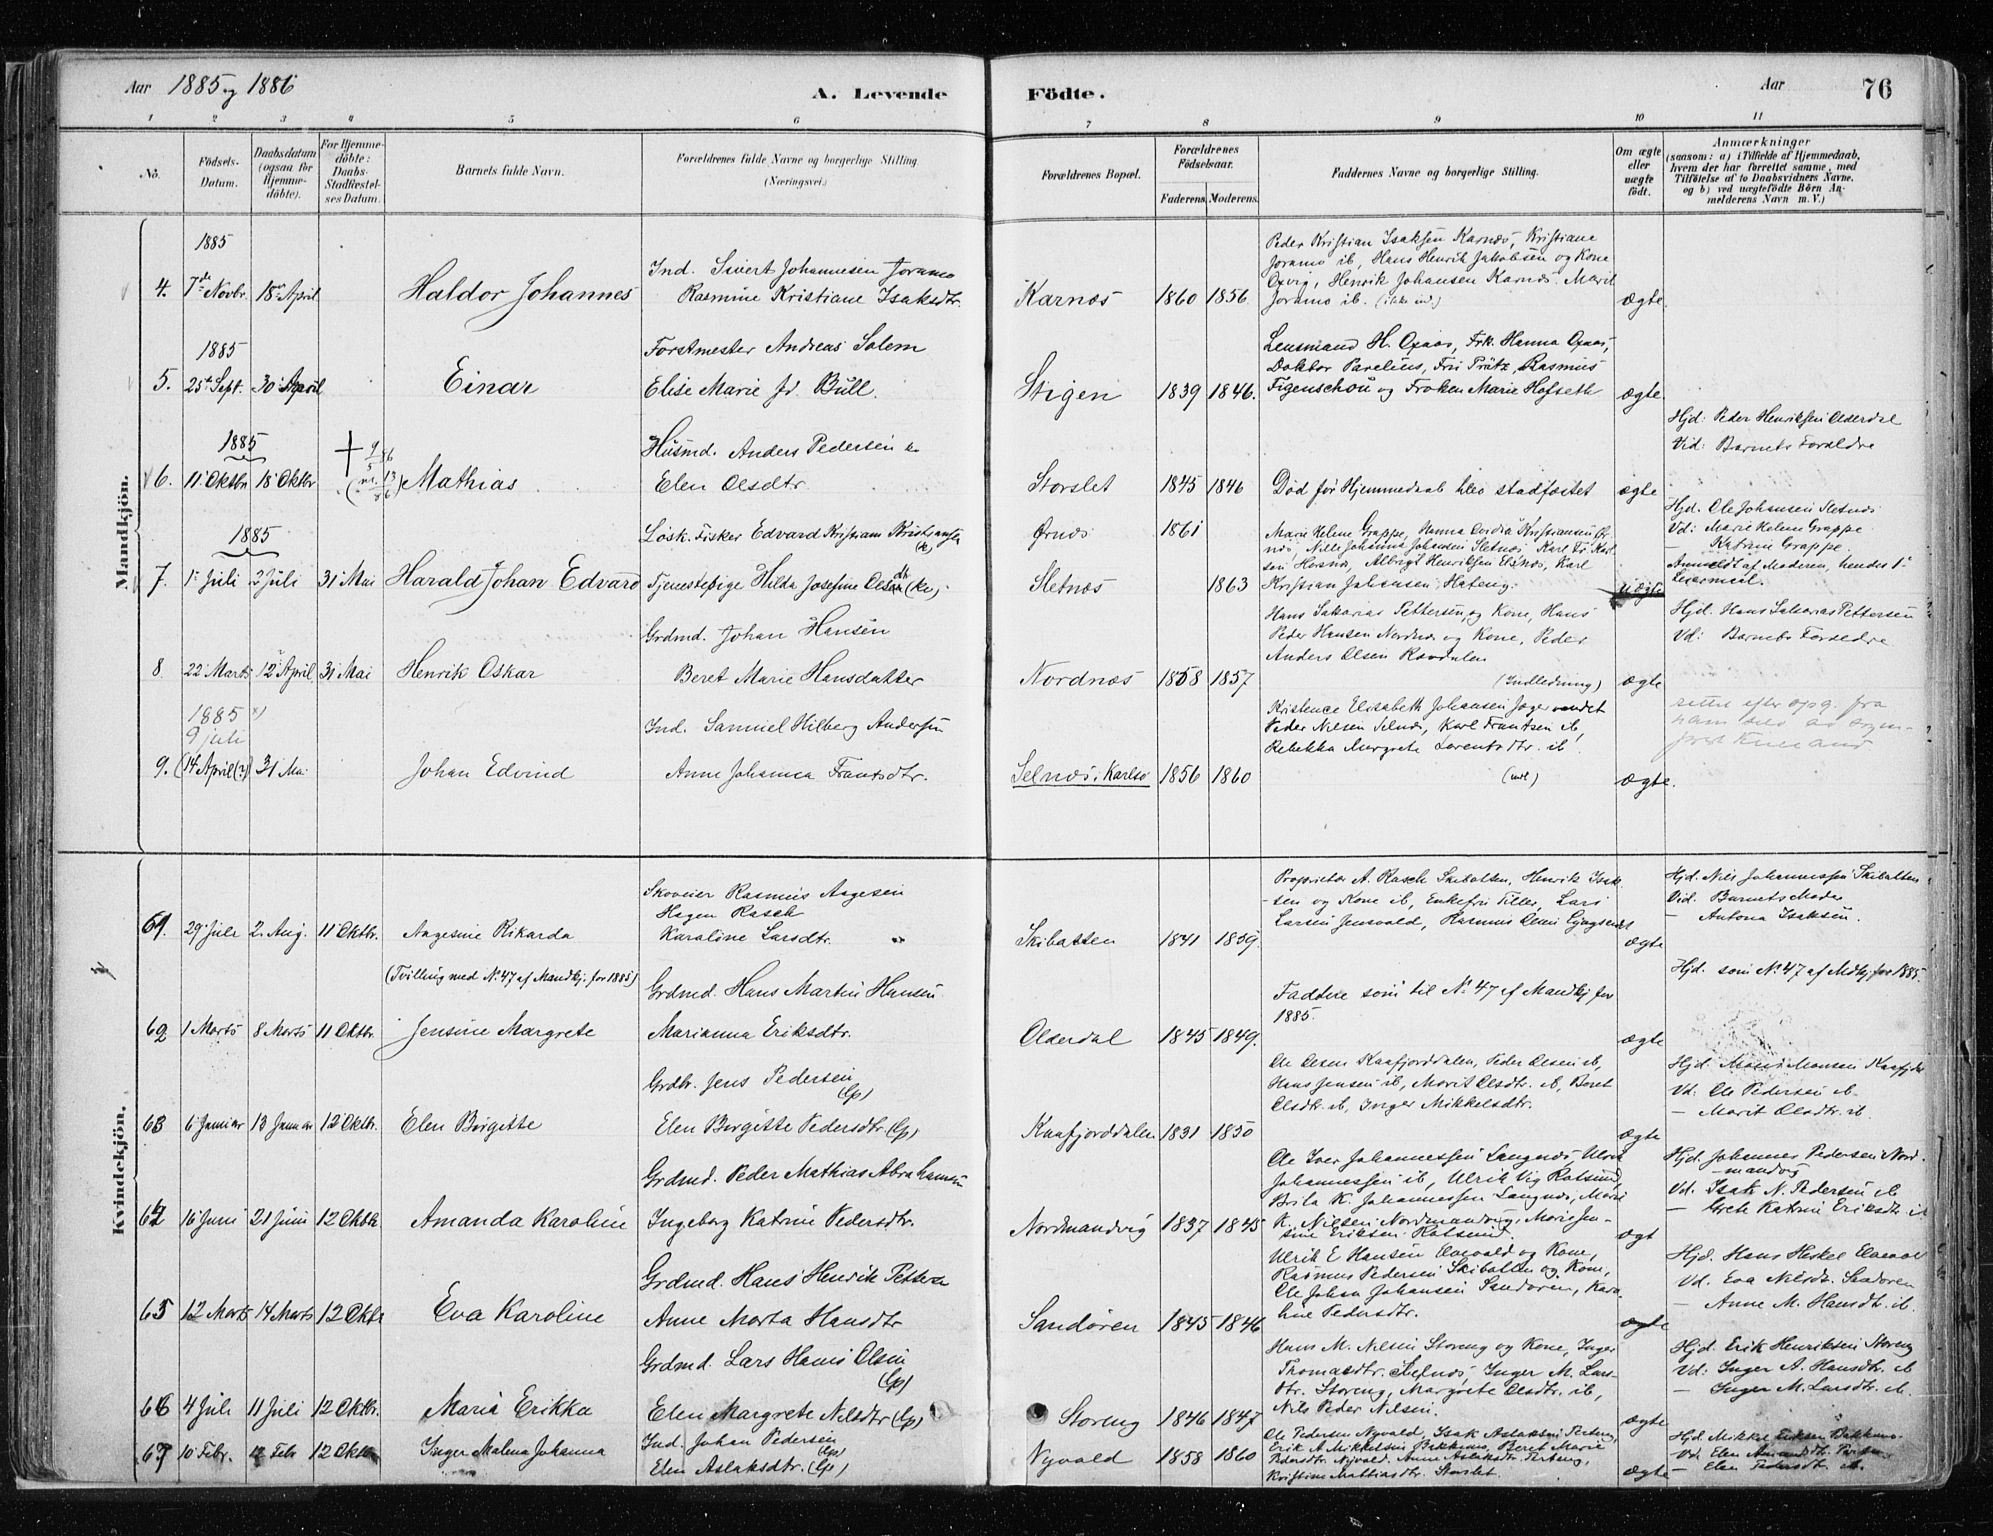 Aar 1885 og 1886
A. Levende Födte.
Aar 76
1 2 3 4 5 6 7 8 9 10 11
No.
Födsels-Datum.
Daabsdatum (ogsaa for Hjemmedöbte).
For Hjemmedöbte: Daabs-Stadfæstelses Datum.
Barnets fulde Navn.
Forældrenes fulde Navne og borgerlige Stilling.
(Næringsvei.)
Forældrenes Bopæl.
Forældrenes Födselsaar.
Faderens. Moderens.
Faddernes Navne og borgerlige Stilling.
Om ægte eller uægte födt.
Anmærkninger
(saasom: a) i Tilfælde af Hjemmedaab, hvem der har forrettet samme, med Tilföielse af to Daabsvidners Navne, og b) ved uægtefödte Börn Anmelderens Navn m. V.)
Mandkjön.
1885
4. 7de Novbr. 18 April
Haldor Johannes
Ind. Sivert Johannesen Joramo
Rasmine Kristiane Isaksdtr.
Karnæs 1860 1856
Peder Kristian Isaksen Karnæs, Kristiane
Joramo ib, Hans Henrik Jakobsen og Kone
Henrik Johansen Karnæs. Marit
Joramo ib.
ægte
1885
5. 25 Sept. 30 April
Einar
Forstmester Andreas Solem
Elise Marie Bull.
Stigen 1839 1846.
Lensmand H. Opaas, Frk. Hanna Opaas,
Doktor Parelius, Rasmus
Figenschou og Frøken Marie Hofseth
ægte
1885
6. 11 Oktbr 18 Oktbr
Mathias
Husmd. Anders Pedersen
Elen Olsdtr
Storslet 1845 1846
Død før Hjemmedaab blev stadfæstet
ægte
Hjd: Peder Henriksen
Vid: Barnets Forældre
1885
7. 1 Juli 2 Juli 31 Mai
Harald Johan Edvard
Løsk. Fisker Edvard Kristian Kristiansen (k)
Tjenestepige Hilda Josefine
Ørnæs 1861
Sletnæs 1863
Marie Helene Grappe, Hanna Kristiansen Ør-
næs, Johanna Johansen Sletnæs
Albrigt Henriksen Karl
Kristian Johansen
uægte
Hjd. Ole Johansen Sletnæs
Vd: Marie Helene Grappe
Katrine Grappe.
Anmeldt af Moderen, hendes 1ste
Leiermaal.
8 22 Marts 12 April 31 Mai
Henrik Oskar
Grdmd. Johan Hansen
Beret Marie Hansdatter
Nordnæs 1858 1857
Hans Sakarias Pettersen og Kone, Hans
Peder Hansen Nordnæs og Kone, Peder
Anders Olsen
(Indledning)
ægte
Hjd. Hans Sakarias Pettersen
Vd: Barnets Forældre
1885 x)
9 juli
9. (14 April (?)) 31 Mai
Johan Edvind
Ind. Samuel Hilberg Andersen
Anne Johanna Frantsdtr.
Selnæs i Karlsø 1856 1860
Elisabeth Johansen Jæger
Peder Nilsen Selnæs, Karl Frantsen ib,
Rebekka Margrete Lorentsdtr. ib.
ægte.
rettet efter opg. fra
Kvindekjön.
61. 29 Juli 2. Aug. 11 Oktbr.
Aagesine Rikarda
Skoveier Rasmus Aagesen
Hagen Rasch
Karoline Larsdtr.
Skibotten 1841 1859.
Proprietær A. Rasch Skibotten, Henrik Isak-
sen og Kone ib, Enkefru Tiller, Lars
Larsen
ægte
Hjd. Nils Johannessen Skibotten
Vid. Barnets Moder
— Antona Isaksen.
(Tvilling med No. 47 af Mandkj. for 1885)
62 1 Marts 8 Marts 11 Oktbr.
Jensine Margrete
Grdmd. Hans Martin Hansen
Marianna Eriksdtr.
Olderdal 1845 1849.
Faddere som til No 47 af Mandkj for
1885.
ægte
Hjd. som No 47 af Mdkj for 1885.
63 6 Januar 13 Januar 12 Oktbr.
Elen Birgitte
Grdbr. Jens Pedersen (lp)
Elen Birgitte Pedersdtr. (lp)
Kaafjorddalen 1831 1850
Ole Olsen Kaafjorddalen, Peder Olsen ib,
Hans Jensen ib, Marit Olsdtr. ib, Beret
Olsdtr. ib, Inger Mikkelsdtr.
ægte
Hjd. Mons Monsen
Vd: Ole Pedersen ib.
— Marit Olsdtr. ib.
64 16 Juni 21 Juni 12 Oktbr
Amanda Karoline
Grdmd. Peder Mathias Abrahamsen
Ingeborg Katrine Pedersdtr.
Nordmandvig 1837 1845
Ole Iver Johannessen Langnæs,
Johannessen ib, Ulrik Vig Rotsund,
Brita K. Johannessen Langnæs,
K. Nilsen Nordmandvig, Marie Jen-
sine Eriksen Rotsund.
ægt
Hjd. Johannes Pedersen Nord-
mandvig
Vd. Isak N. Pedersen ib
— Grete Katrine Eriksdtr. ib
65 12 Marts 14 Marts 12 Oktbr
Eva Karoline
Grdmd. Hans Henrik Pettersen
Anne Marta Hansdtr
Sandøren 1845 1846
Ulrik E Hansen Elvevold og Kone,
Rasmus Pedersen Skibotten og Kone,
Ole Johan Johansen Sandøren, Karo-
line Pedersdtr.
ægte
Hjd. Hans Heskel Elvevold
Vd. Eva Nilsdtr. Sandøren
— Anne M. Hansdtr. ib.
66 4 Juli 11 Juli 12 Oktbr.
Maria Erikka
Grdmd. Lars Hansen Olsen (lp)
Elen Margrete Nilsdtr (lp)
Storeng 1846 1847
Hans M. Nilsen Storeng og Kone, Inger
Thomasdtr. Selnæs, Inger M. Lars-
dtr. Storeng, Margrete Olsdtr. ib,
Nils Peder Nilsen.
ægte
Hjd. Erik Henriksen Storeng
Vd: Inger A. Hansdtr. ib
— Inger M. Larsdtr. ib.
67 10 Febr. 12 Febr 12 Oktbr
Inger Malena Johanna
Ind. Johan Pedersen (lp)
Elen Aslaksdtr. (lp)
Nyvold 1858 1860
Ole Pedersen Nyvold, Isak Aslaksen
Erik A Mikkelsen Beret Marie
Pedersdtr. Nyvold, Anne Aslaksdtr.
Kristine Mathiasdtr. Storslet.
ægte
Hjd. Mikkel Eriksen
— Elen Pedersdt. ib.